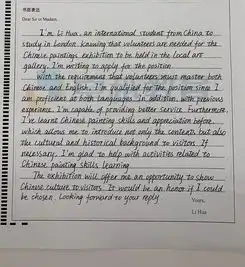 书面表达
Dear Sir or Madam,
I'm Li Hua, an international student from China to
study in London. Knowing that volunteers are needed for the
Chinese paintings exhibition to be held in the local art
gallery, I'm writing to apply for the position.
With the requirement that volunteers must master both
Chinese and English, I'm qualified for the position since I
am proficient at both languages. In addition, with previous
experience, I'm capable of providing better service. Furthermore,
I've learnt Chinese painting skills and appreciation before,
which allows me to introduce not only the contents but also
the cultural and historical background to visitors. If
necessary, I'm glad to help with activities related to
Chinese painting skills learning.
The exhibition will offer me an opportunity to show
Chinese culture to visitors. It would be an honor if I could
be chosen. Looking forward to your reply.
Yours,
Li Hua